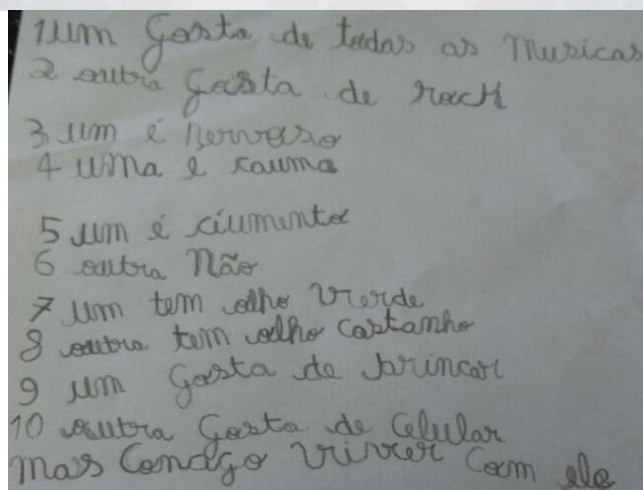 1 um Gosta de todas as Musicas
2 outra Gosta de rock
3 um é Nervoso
4 uma e cauma
5 um é ciumento
6 outra Não
7 um tem olho Verde
8 outra tem olho castanho
9 um Gosta de brincar
10 outra Gosta de Celular
mas Consigo Vivver Com ele